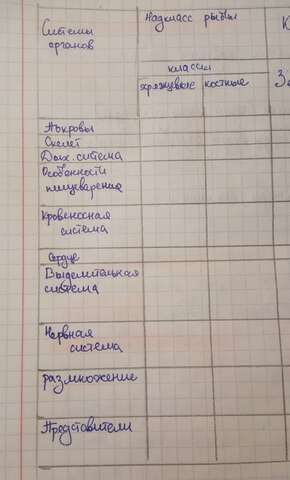 Системы
органов
Надкласс рыбы
классы
хрящевые
костные
Покровы
Скелет
Дых. система
Особенности
пищеварения
Кровеносная
система
Сердце
Выделительная
система
Нервная
система
размножение
Представители